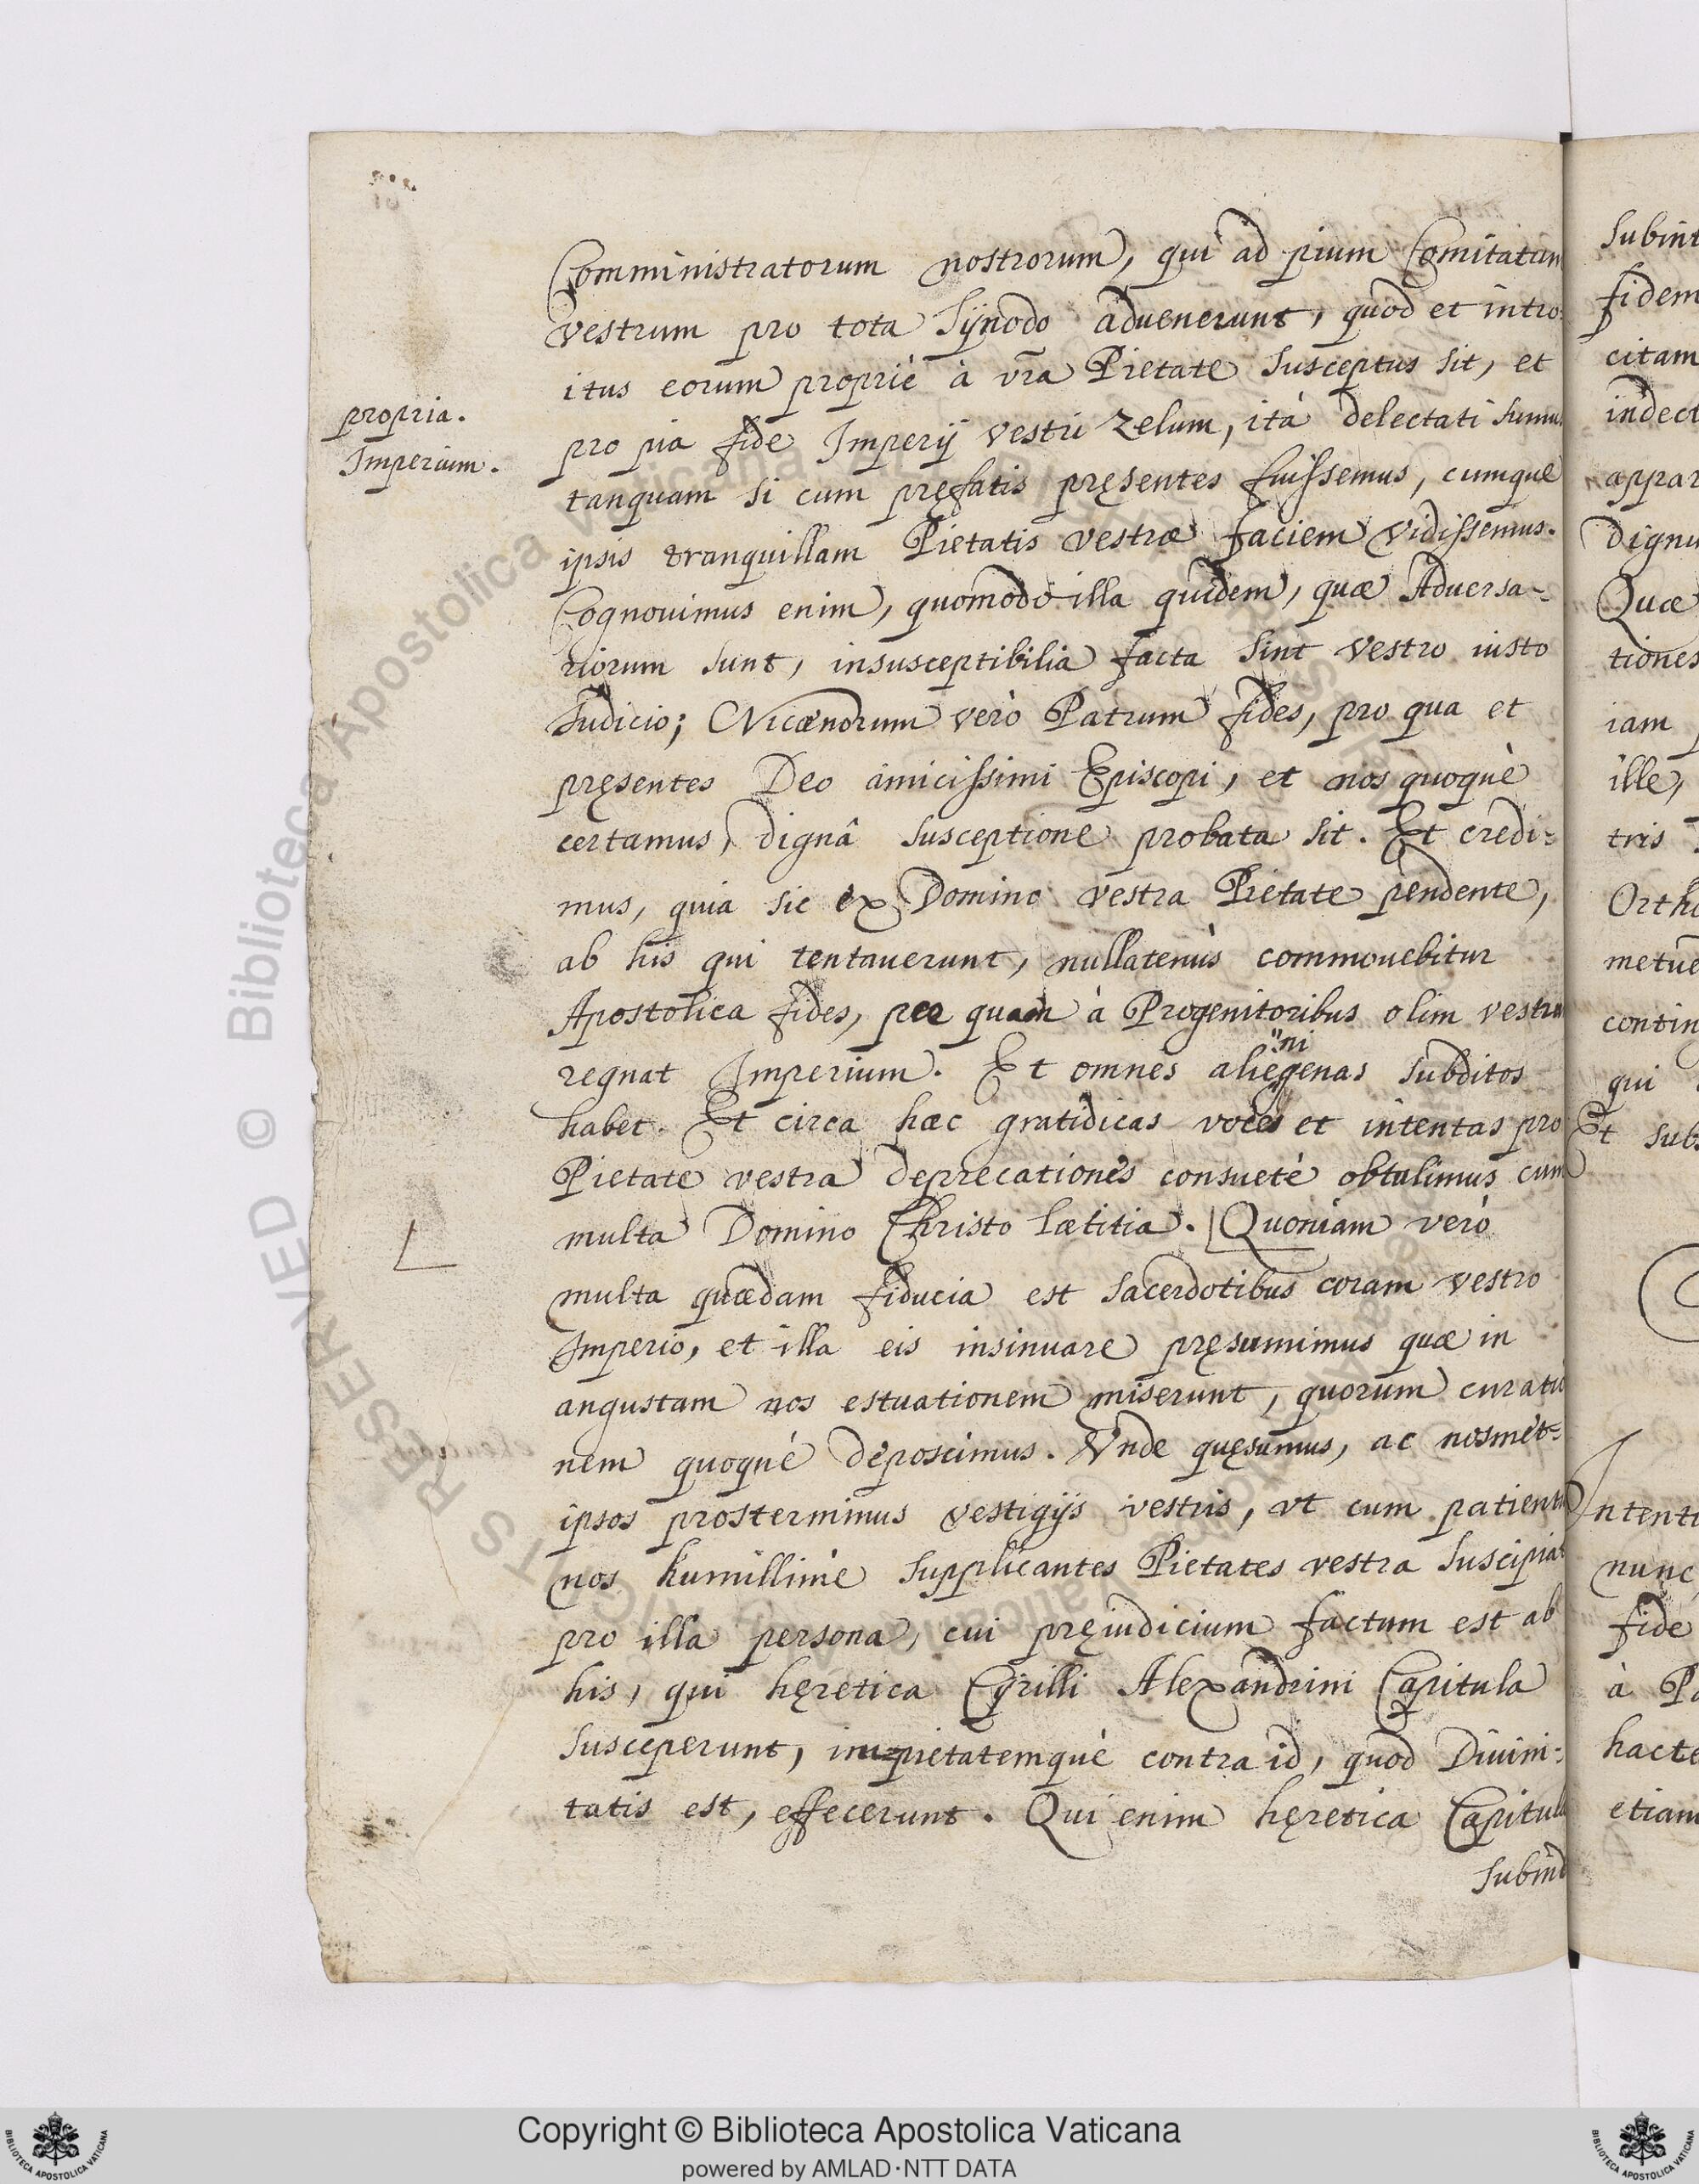 Comministratorum nostrorum, qui ad pium Comitatum
vestrum pro tota Sÿnodo aduenerunt, quod et intro:
itus eorum propriè à vr̃a Pietate susceptus sit, et
propria.
Imperium.
pro pia fide Imperij vestri zelum, ità delectati sumus
tanquam si cum pręfatis pręsentes fuissemus, cumque
ipsis tranquillam Pietatis vestræ faciem vidissemus.
Cognouimus enim, quomodo illa quidem, quæ Aduersa-
riorum sunt, insusceptibilia facta sint vestro iusto
Iudicio; Nicænorum verò Patrum fides, pro qua et
pręsentes Deo amicissimi Episcopi, et nos quoquè
certamus, dignâ susceptione probata sit. Et credi:
mus, quia sic ex Domino vestra Pietate pendente,
ab his qui tentauerunt, nullatenùs commouebitur
Apostolica fides, per quam à Progenitoribus olim vestrum
regnat Imperium. Et omnes aliegenas subditos
ni
habet. Et circa hæc gratidicas voces et intentas pro
Pietate vestra deprecationes consuetè obtulimus cum
multa Domino Christo lætitia. Quoniam verò
multa quædam fiducia est sacerdotibus coram vestro
Imperio, et illa eis insinuare pręsumimus quæ in
angustam nos estuationem miserunt, quorum curatio
nem quoquè deposcimus. Vnde quęsumus, ac nosmet:
ipsos prosternimus vestigijs vestris, vt cum patientia
nos humillimè supplicantes Pietates vestra suscipiat
pro illa persona, cui pręiudicium factum est ab
his, qui hęretica Cyrilli Alexandrini Capitula
susceperunt, impietatemquè contra id, quod Diuini:
tatis est, effecerunt. Qui enim hęretica Capitula
subind
subint
fidem
citam
indect
appar
dignu
Quæ
tiones
iam
ille,
tris
Ortho
metue
contin
qui
Et subs
Intenti
nunc
fide
à Pa
hacte
etiam
© Biblioteca Apostolica Vaticana
RIGHTS RESERVED
Copyright © Biblioteca Apostolica Vaticana
powered by AMLAD·NTT DATA
BIBLIOTECA APOSTOLICA VATICANA
BIBLIOTECA APOSTOLICA VATICANA